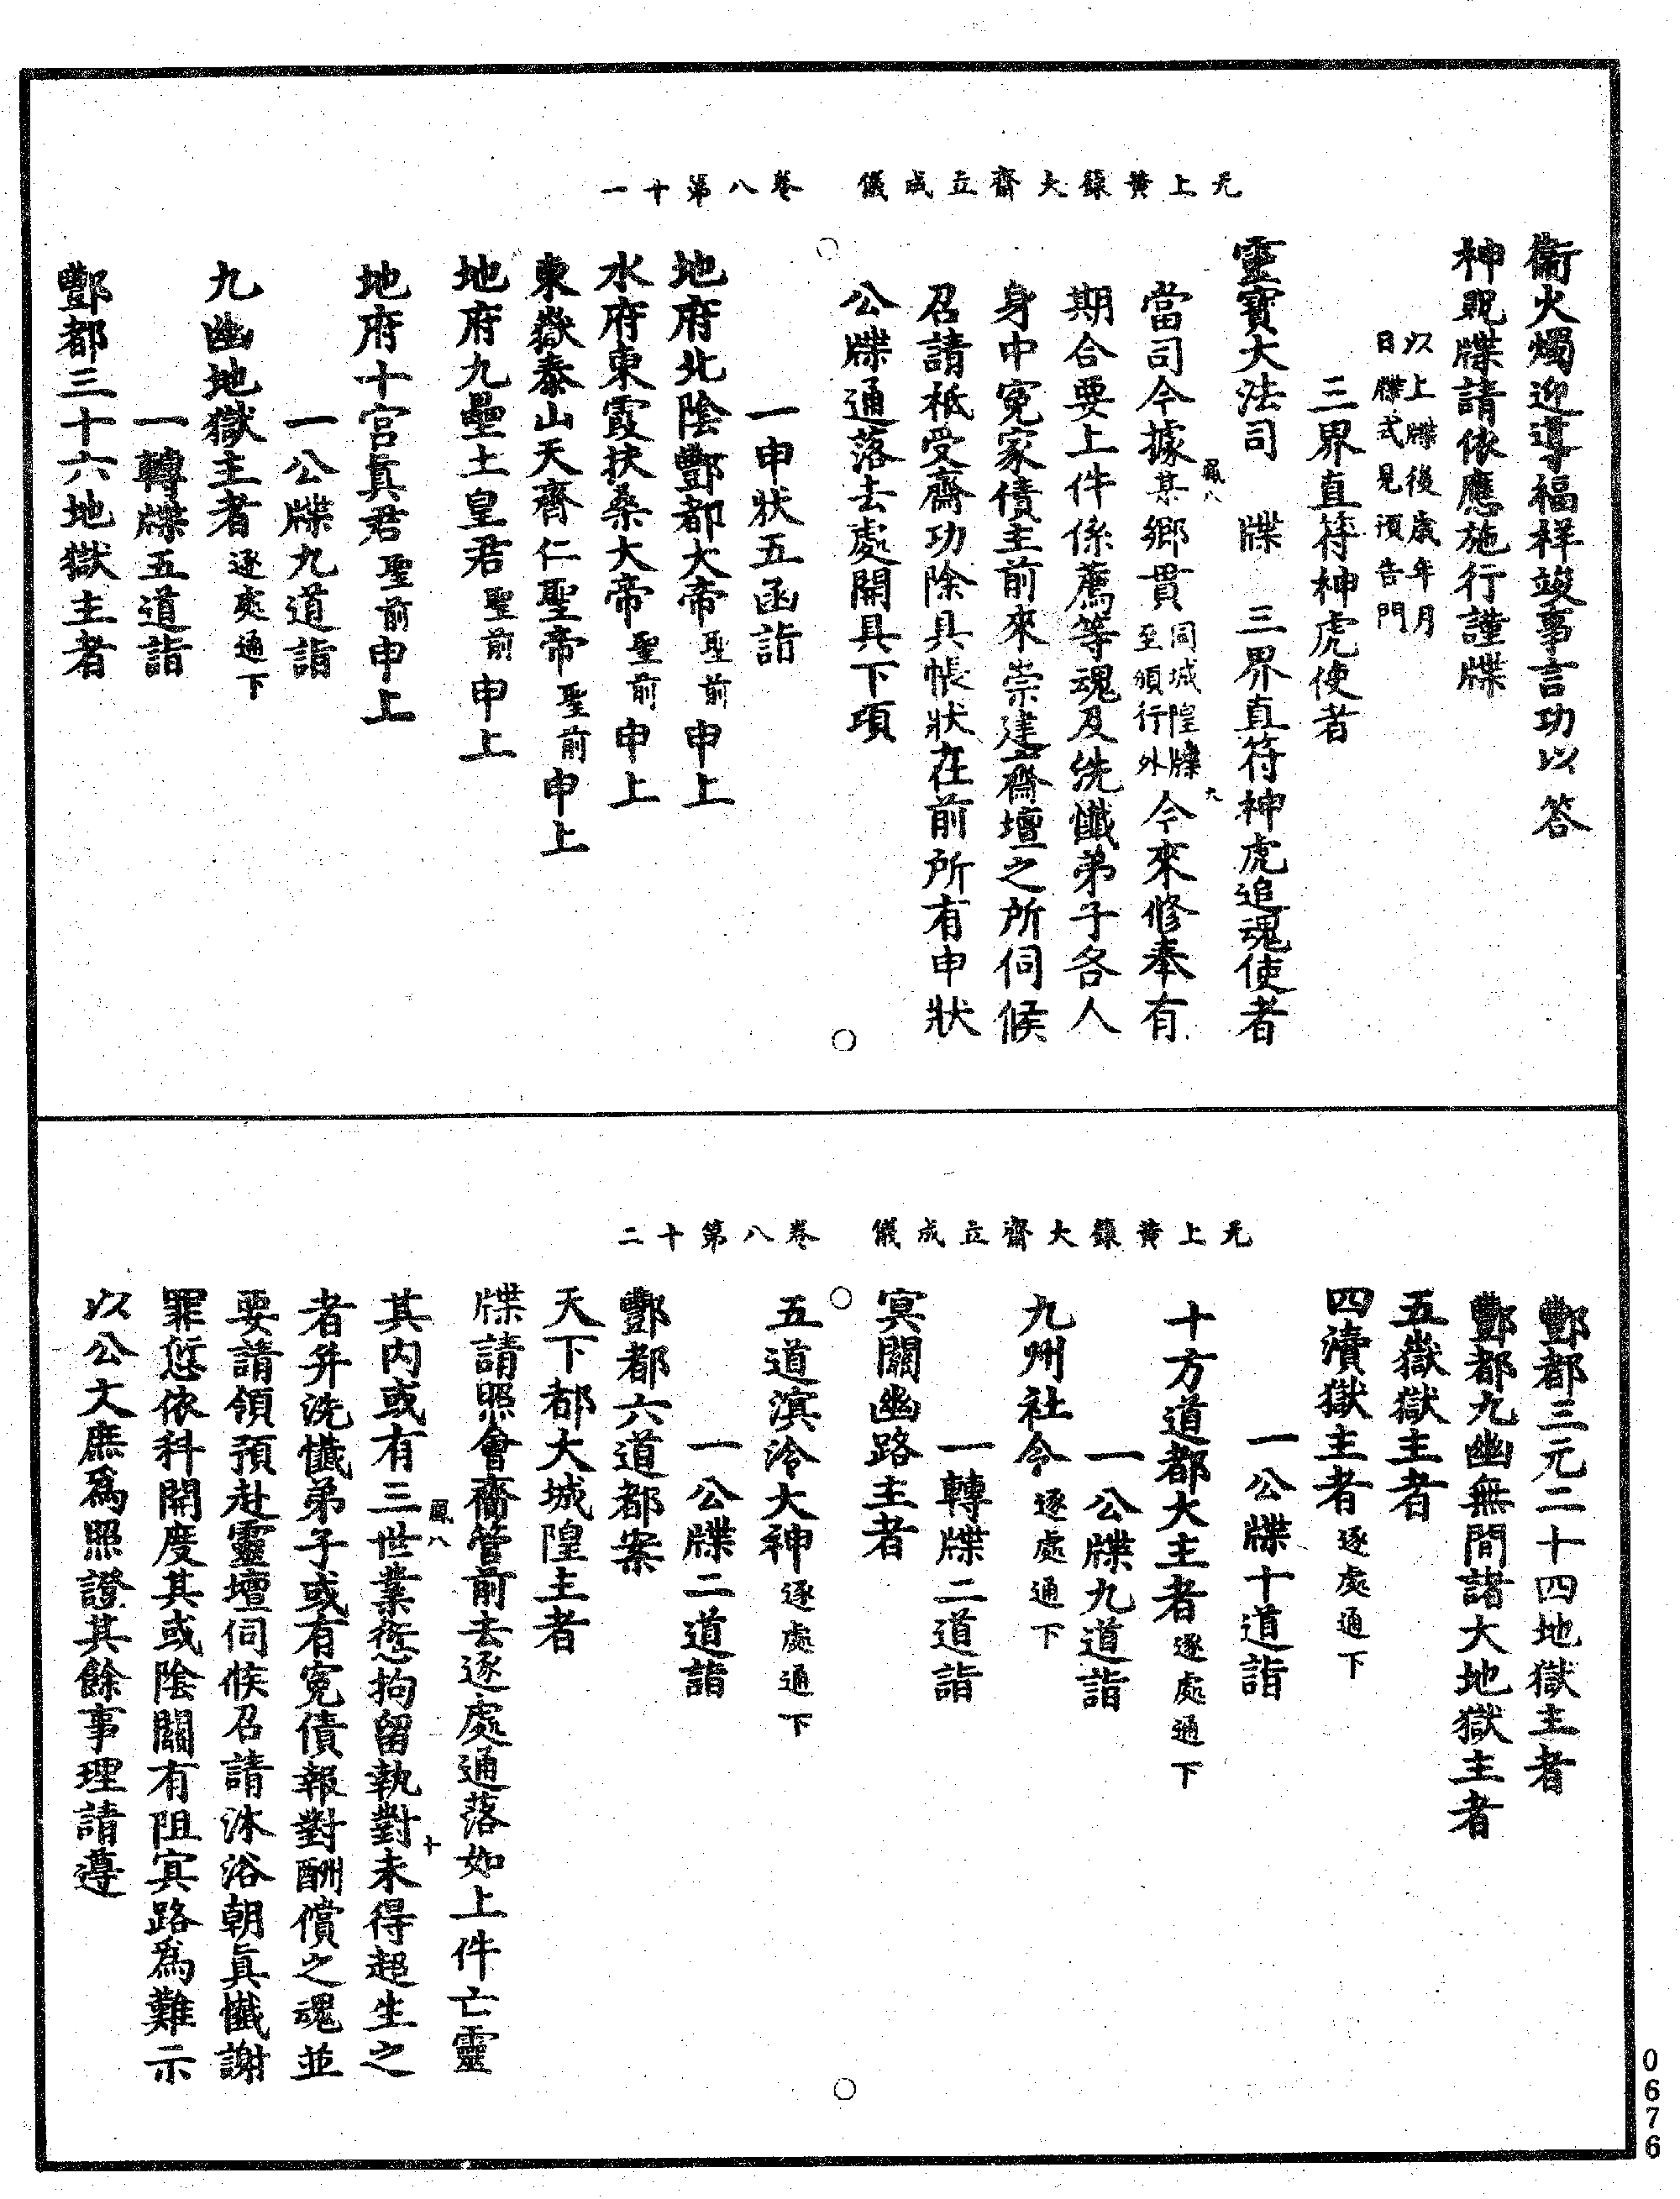 无上黃籙大齋立成儀　卷八第十一
衞火燭迎導福祥竣事言功以答
神貺牒請依應施行謹牒
以上牒後歲年月
日牒式見須告門
三界直符神虎使者
靈寶大法司　牒　三界直符神虎追魂使者
當司今據某鄉貫同城隍牒至頒行外今來修奉有
鳳八
大
期合要上件係薦等魂及洗懺弟子各人
身中冤家債主前來崇建齋壇之所伺候
召請祗受齋功除具帳狀在前所有申狀
公牒通落去處開具下項
一申狀五函詣
地府北陰酆都大帝聖前申上
水府東霞扶桑大帝聖前申上
東嶽泰山天齊仁聖帝聖前申上
地府九壘土皇君聖前申上
地府十宮眞君聖前申上
一公牒九道詣
九幽地獄主者逐處通下
一轉牒五道詣
酆都三十六地獄主者
无上黃籙大齋立成儀　卷八第十二
酆都三元二十四地獄主者
酆都九幽無間諸大地獄主者
五嶽獄主者
四瀆獄主者逐處通下
一公牒十道詣
十方道都大主者逐處通下
一公牒九道詣
九州社令逐處通下
一轉牒二道詣
冥關幽路主者
五道溟泠大神逐處通下
一公牒二道詣
酆都六道都案
天下都大城隍主者
牒請照會齋管前去逐處通落如上件亡靈
其内或有三世業愆拘留執對未得超生之
鳳八
十
者并洗懺弟子或有冤債報對酬償之魂並
要請領預赴靈壇伺候召請沐浴朝眞懺謝
罪愆依科開度其或陰關有阻冥路爲難示
以公文庶爲照證其餘事理請遵
0676